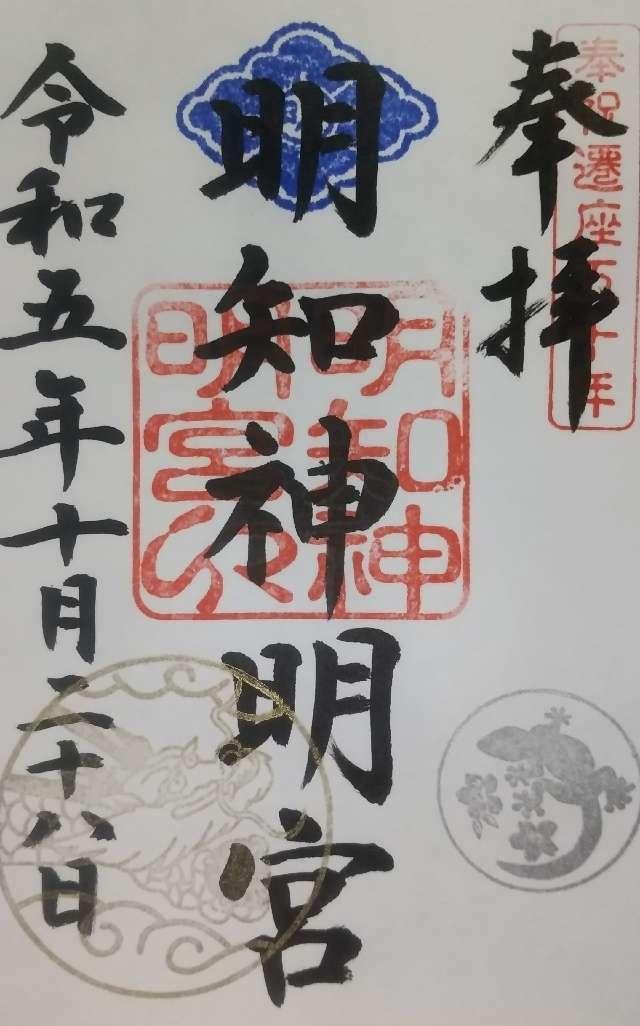 奉拝
奉祝遷座百十年
明知神明宮
明知神
明宮
令和五年十月二十八日